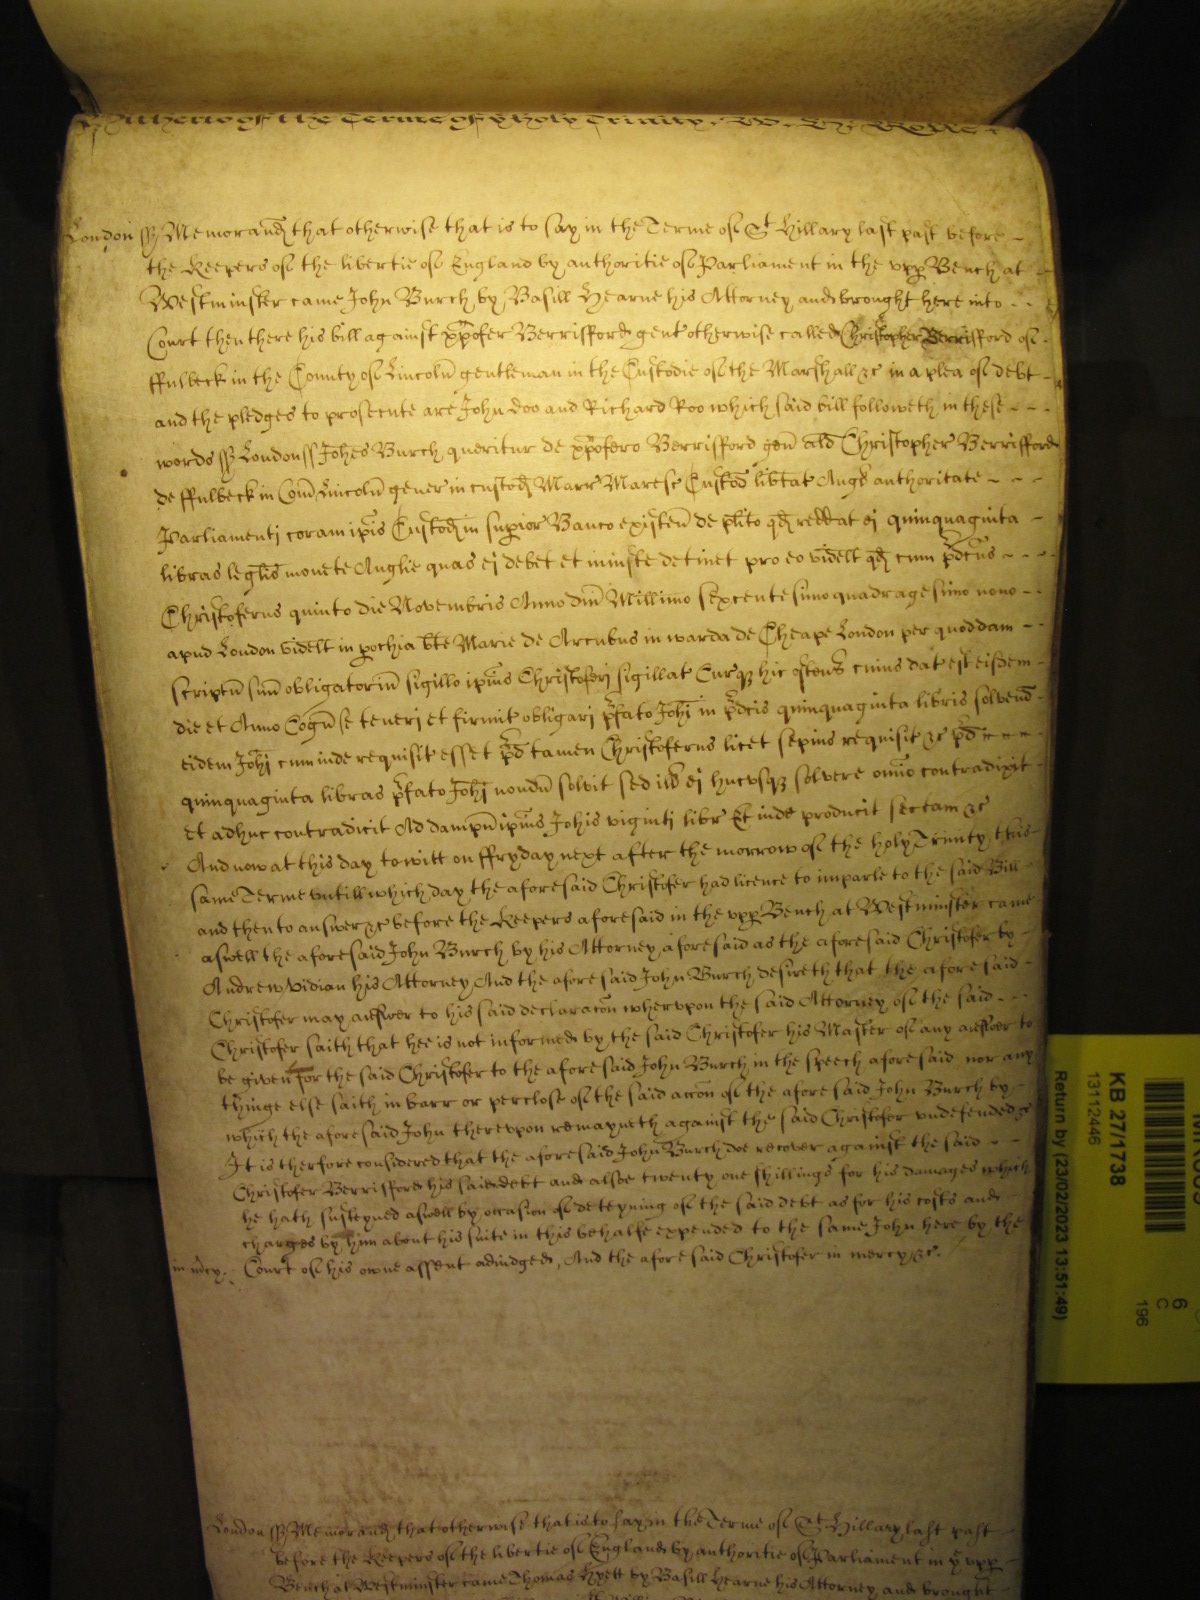 of the Terme of ye holy Trinity
London ss Memorand that otherwise that is to say in the Terme of St Hillary last past before
the Keepers of the libertie of England by authoritie of Parliament in the upp Bench at
Westminster came John Burch by Basill Hearne his Attorney and brought here into
Court then there his bill against xpofer Berrifford gent otherwise called Christopher Berrifford of
ffulbeck in the County of Lincoln gentleman in the Custodie of the Marshall &c in a plea of debt
and the pledges to prosecute are John doo and Richard Roo which said bill followeth in these
words ss London ss Johes Burch queritur de xpofero Berrifford gen als Christopher Berrifford
de ffulbeck in Com Lincoln gener in custod Marr Maresc Custod libtat Angl authoritate
Parliamenti coram ipis Custod in superior Banco existen de plito qd reddat ei quinquaginta
libras leglis monete Anglie quas ei debet et iniuste detinet pro eo videlt qd cum pdcus
Christoferus quinto die Novembris Anno dni Millimo sexcentesimo quadragesimo nono
apud London videlt in pochia bte Marie de Arcubus in warda de Cheape London per quoddam
scriptu suu obligatoriu sigillo ipius Christoferi sigillat Curq hic ostens cuius dat est eisdem
die et Anno Cogn se teneri et firmit obligari pfato Johi in pdcis quinquaginta libris solvend
eidem Johi cum inde requisit esset pd tamen Christoferus licet sepius requisit &c pd
quinquaginta libras pfato Johi nondu solvit sed ill ei hucusq solvere omio contradixit
et adhuc contradicit Ad dampn ipius Johis viginti libr Et inde producit sectam &c
And now at this day to witt on ffryday next after the morrow of the holy Trinity this
same Terme untill which day the aforesaid Christofer had licence to imparle to the said Bill
and then to answer &c before the Keepers aforesaid in the upp Bench at Westminster came
aswell the aforesaid John Burch by his Attorney aforesaid as the aforesaid Christofer by
Andrew Vidian his Attorney And the aforesaid John Burch desireth that the aforesaid
Christofer may answer to his said declaracon wherupon the said Attorney of the said
Christofer saith that hee is not informed by the said Christofer his Master of any answer to
be given for the said Christofer to the aforesaid John Burch in the speech aforesaid nor any
thinge else saith in barr or perclose of the said accon of the aforesaid John Burch by
which the aforesaid John thereupon remayneth against the said Christofer undefended &c
It is therfore considered that the aforesaid John Burch doe recover against the said
Christofer Berrifford his said debt and alsoe twenty one shillings for his damages which
he hath susteyned aswell by occasion of deteyning of the said debt as for his costs and
charges by him about his suite in this behalfe expended to the same John here by the
in mcy. Court of his owne assent adiudged, And the aforesaid Christofer in mercy &c.
London ss Memorand that otherwise that is to say in the Terme of St Hillary last past
before the Keepers of the libertie of England by authoritie of Parliament in ye upp
Bench at Westminster came Thomas Hyett by Basill Hearne his Attorney and brought
KB 27/1738
13112446
Return by (23/02/2023 13:51:49)
6
C
196